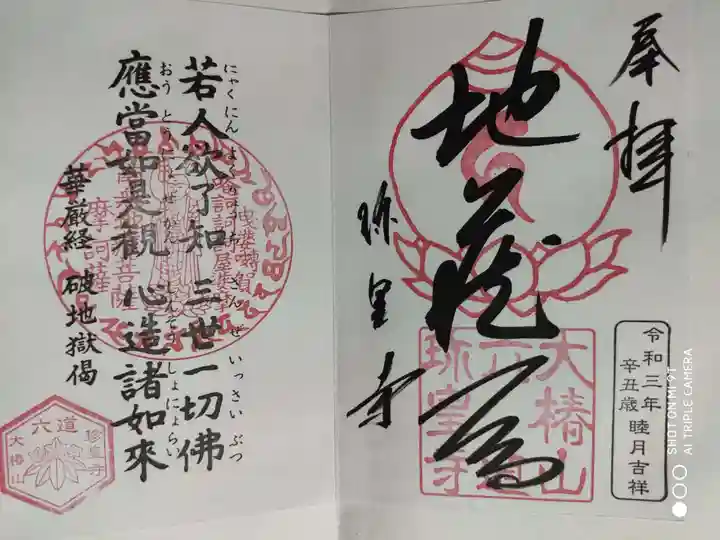 奉拝
地蔵尊
珎皇寺
大椿山
六道
珎皇寺
令和三年
辛丑歳 睦月吉祥
若人欲了知 三世一切佛
にゃくにんよくりょうち さんぜいっさいぶつ
應當如是觀 心造諸如來
おうとうにょぜかん しんぞうしょにょらい
華厳経 破地獄偈
摩訶薩
六道
珍皇寺
大椿山
SHOT ON MI 9T
AI TRIPLE CAMERA